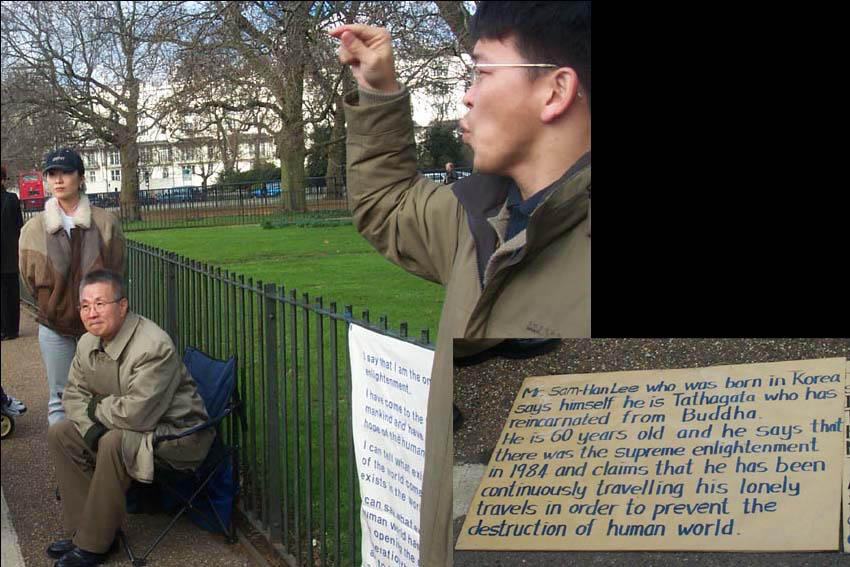 I say that I am the on
enlightenment.
I have come to the
mankind and have
hope of the human
I can tell what exi
of the world come
exists in the wor
can say what e
uman world hav
opening the
eratiou
Mr. Sam-Han Lee who was born in Korea
says himself he is Tathagata who has
reincarnated from Buddha.
He is 60 years old and he says that
there was the supreme enlightenment
in 1984 and claims that he has been
continuously travelling his lonely
travels in order to prevent the
destruction of human world.